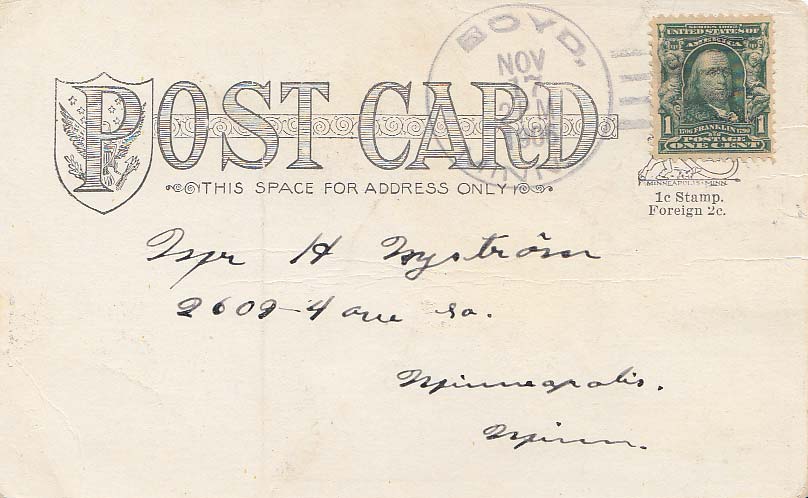 BOYD,
NOV
MINN.
SERIES 1902
UNITED STATES OF
AMERICA
1 1
1706 FRANKLIN 1790
POSTAGE
ONE CENT
POST CARD
THIS SPACE FOR ADDRESS ONLY
MINNEAPOLIS MINN.
1c Stamp.
Foreign 2c.
Mr H Nyström
2609-4 ave so.
Minneapolis.
Minn.